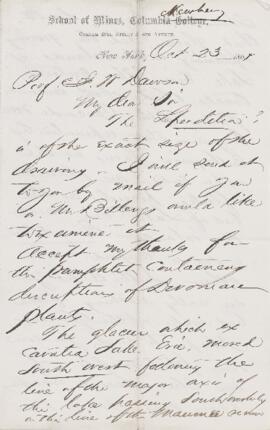 Newberry
School of Mines, Columbia College,
New York, Oct 23 18
Prof J. W. Dawson
My dear Sir
The Lepidechins?
is of the exact size of the
drawing. I will send it
to you by mail if you
or Mr Billings would like
to examine it
Accept my thanks for
the pamphlet containing
descriptions of Devonian
plants.
The glacier which ex
cavated Lake Erie, moved
south west following the
line of the major axis of
the lake passing southwesterly
on the line of the Maumee